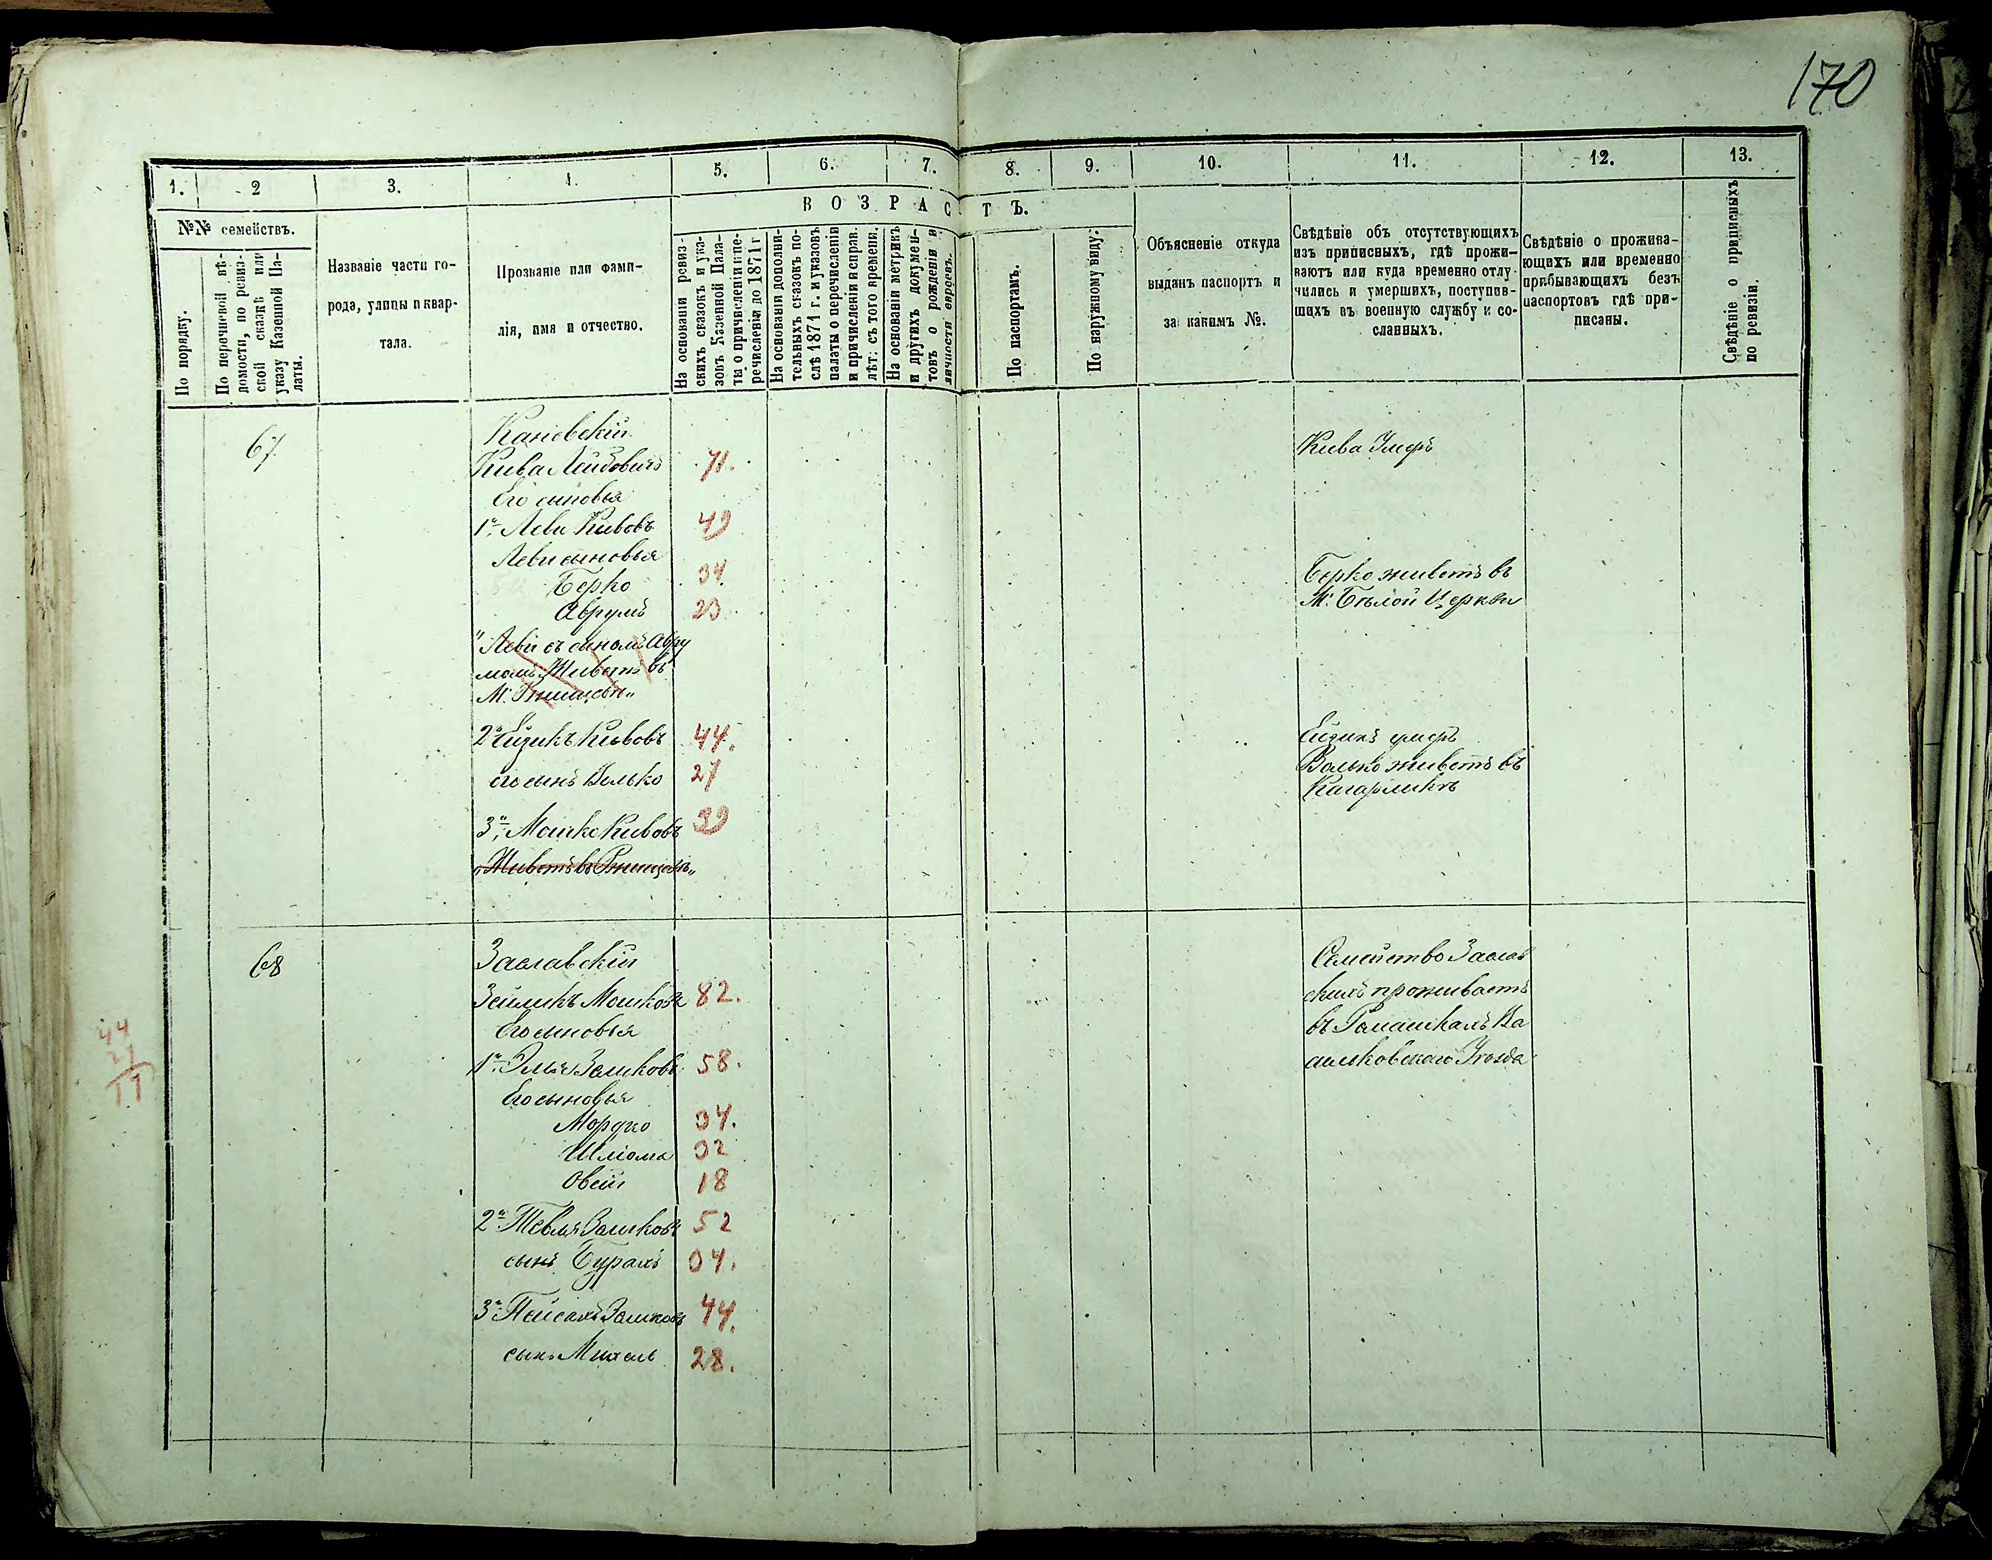 170
1. 2 3. 4. 5. 6. 7. 8. 9. 10. 11. 12. 13.
№№ семействъ.
По порядку.
По перечневой вѣ-
домости, по ревиз-
ской сказкѣ или
указу Казенной Па-
латы.
Названіе части го-
рода, улицы и квар-
тала.
Прозваніе или фами-
лія, имя и отчество.
ВОЗРАСТЪ.
На основаніи ревиз-
скихъ сказокъ и ука-
зовъ Казенной Пала-
ты о причисленіи и пе-
речисленіи до 1871 г.
На основаніи дополни-
тельныхъ сказокъ по-
слѣ 1871 г. и указовъ
палаты о перечисленіи
и причисленіи и справ.
лѣт: съ того времени.
На основаніи метрикъ
и другихъ докумен-
товъ о рожденіи и
личности евреевъ.
По паспортамъ.
По наружному виду.
Объясненіе откуда
выданъ паспортъ и
за какимъ №.
Свѣдѣніе объ отсутствующихъ
изъ приписныхъ, гдѣ прожи-
ваютъ или куда временно отлу-
чились и умершихъ, поступив-
шихъ въ военную службу и со-
сланныхъ.
Свѣдѣніе о прожива-
ющихъ или временно
прибывающихъ безъ
паспортовъ гдѣ при-
писаны.
Свѣдѣніе о приписныхъ
по ревизіи.
67
Каневскій
Кива Лейбовичъ 71. Кива Умеръ
Его сыновья
1й Леви Кивовъ 49
Леви сыновья
Берко 34 Берко живетъ въ
Аврумъ 23 М. Бѣлой Церкви
"Леви съ сыномъ Авру
момъ Живетъ въ
М. Ржищевѣ"
2й Ейзикъ Кивовъ 44. Ейзикъ умеръ
его сынъ Волько 27 Волько живетъ въ
Кагарликѣ
3й, Мошко Кивовъ 39
"Живетъ въ Ржищевѣ"
68
Заславскій Семейство Заслав
Зейликъ Мошковъ 82. скихъ проживаетъ
Его сыновья въ Ромашкахъ Ва
1й Эля Зейликовъ 58. сильковскаго Уѣзда
Его сыновья
Мордко 34.
Шліома 32
Овсій 18
2й Тевля Зейликовъ 52
сынъ 34.
3й Пейсахъ Зейликовъ 44.
сынъ Михель 28.
44
27